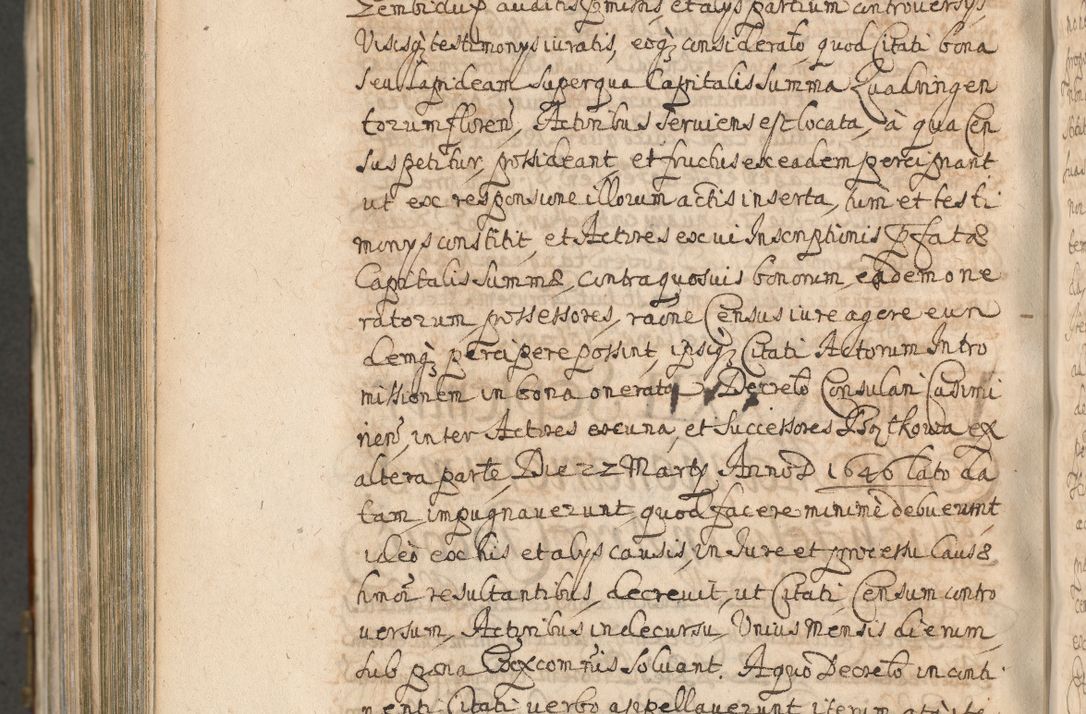 Zembidup auditis pmissis, et alys partium controversys
Visisq testimonys iuratis, eoq considerato quod Citati bona
seu Lapideam super qua Capitalis summa Quadringen
torum floren, Actoribus serviens est locata, à qua Cen
sus petitur, possideant, et fructus ex eadem percipiant
ut ex responsione illorum actis inserta, tum et testi
monys constitit, et Actores ex vi Inscriptionis pfatæ
Capitalis summæ, contra quosvis bonorum, eadem one
ratorum, possessores, raōne Census iure agere eun
demq percipere possint, ipsiq Citati Actorum Intro
missionem in bona onerata, Decreto Consulari Casimi
rien, inter Actores ex una, et Successores Piątkowa ex
altera parte, Die 22 Marty, Anno D 1646 lato da
tam, impugnaverunt, quod facere minimè debuerunt
ideò ex his et alys causis, in Jure et processu causæ
hmōi resultantibus, decrevit, ut Citati Censum contro
versum, Actoribus in decursu, Unius Mensis dierum
sub pœna Excomnis solvant. A quo Decreto in conti
nenti Citati verbo appellaverunt iterum